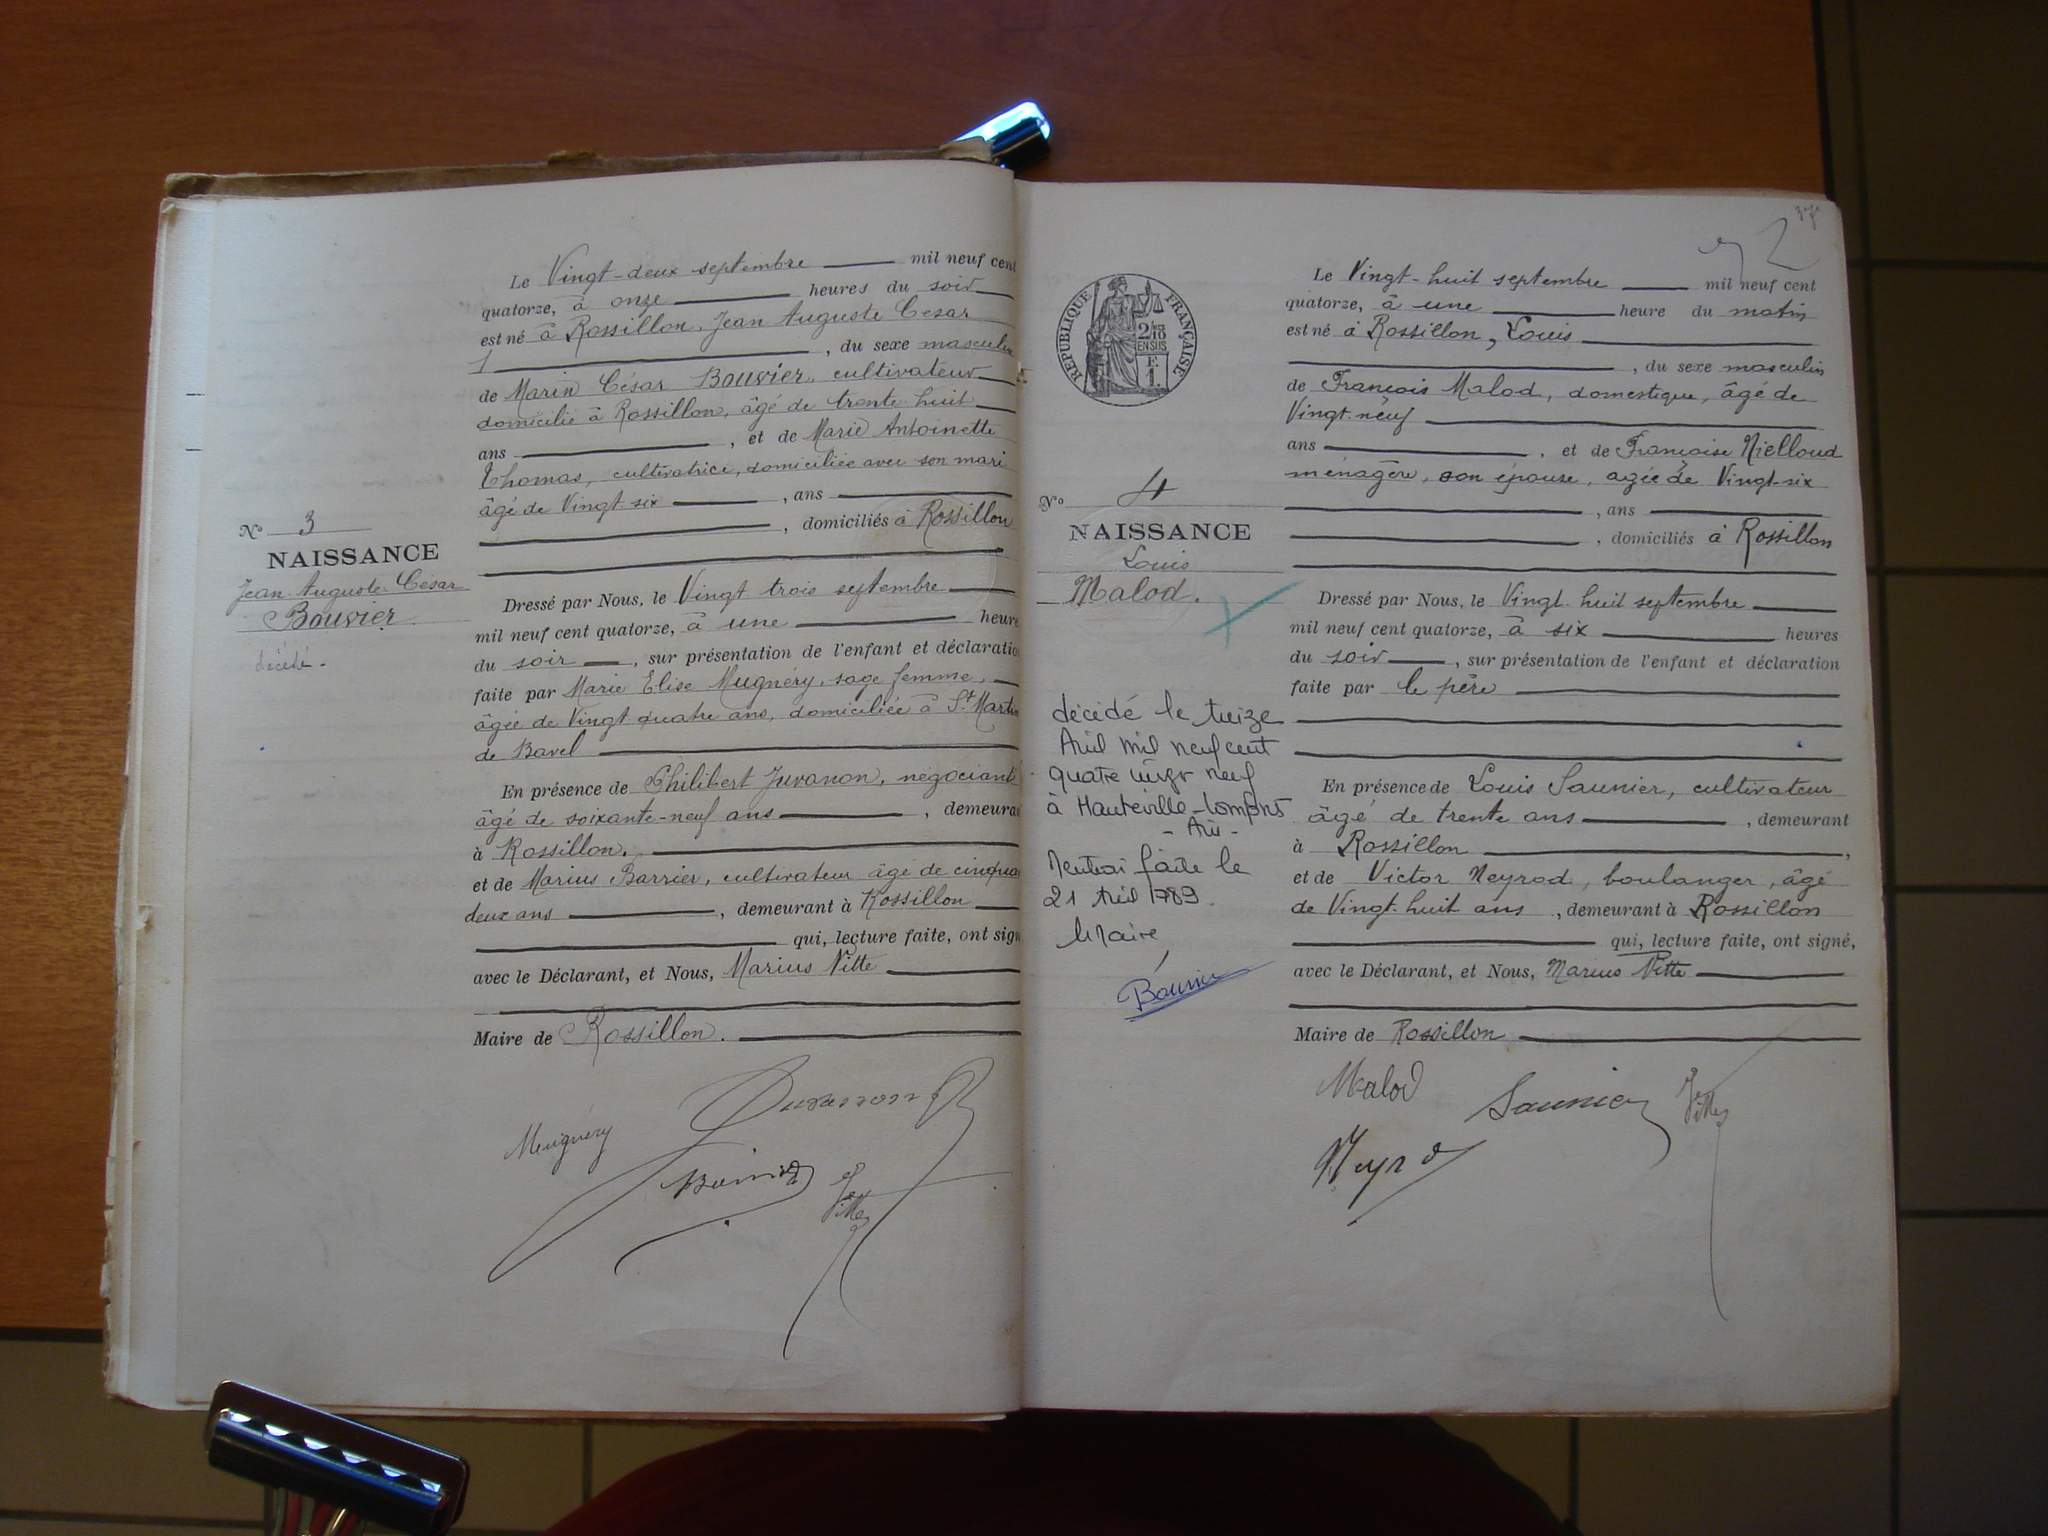 Le Vingt-deux septembre mil neuf cent
quatorze, à onze heures du soir
est né à Rossillon, Jean Auguste Cesar
, du sexe masculin
de Marin César Bouvier, cultivateur
domicilié à Rossillon, âgé de trente huit
ans , et de Marie Antoinette
Thomas, cultivatrice, domiciliée avec son mari
âgé de Vingt-six , ans
, domiciliés à Rossillon
No 3
NAISSANCE
Jean Auguste Cesar
Bouvier
décédé.
Dressé par Nous, le Vingt trois septembre
mil neuf cent quatorze, à une heure
du soir , sur présentation de l'enfant et déclaration
faite par Marie Elise Mugnéry, sage femme,
âgée de Vingt quatre ans, domiciliée à St Martin
de Bavel
En présence de Philibert Juvanon, négociant
âgé de soixante-neuf ans , demeurant
à Rossillon.
et de Marius Barrier, cultivateur âgé de cinqua
deux ans , demeurant à Rossillon
qui, lecture faite, ont signé
avec le Déclarant, et Nous, Marius Vitte
Maire de Rossillon.
Juvanon
Mugnéry
Vitte
RÉPUBLIQUE FRANÇAISE
2/10
EN SUS
F.
1.
Le Vingt-huit septembre mil neuf cent
quatorze, à une heure du matin
est né à Rossillon, Louis
, du sexe masculin
de François Malod, domestique, âgé de
Vingt-neuf
ans , et de Françoise Nielloud
ménagère, son épouse, agée de Vingt-six
, ans
, domiciliés à Rossillon
No 4
NAISSANCE
Louis
Malod.
décédé le treize
Avril mil neuf cent
quatre vingt neuf
à Hauteville-Lompnes
- Ain -
Mention faite le
21 Avril 1989.
Le Maire,
Dressé par Nous, le Vingt huit septembre
mil neuf cent quatorze, à six heures
du soir , sur présentation de l'enfant et déclaration
faite par le père
En présence de Louis Saunier, cultivateur
âgé de trente ans , demeurant
à Rossillon ,
et de Victor Neyrod, boulanger, âgé
de Vingt-huit ans , demeurant à Rossillon
qui, lecture faite, ont signé,
avec le Déclarant, et Nous, Marius Vitte
Maire de Rossillon
Malod
Saunier
Vitte
Neyrod